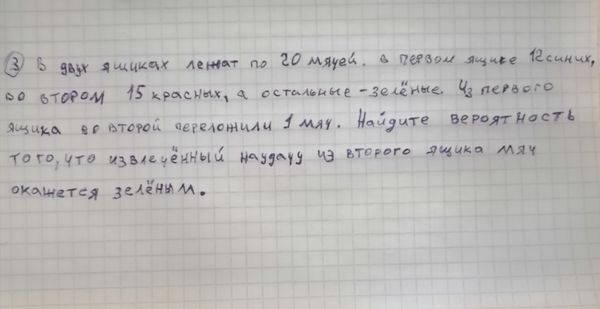 ③ В двух ящиках лежат по 20 мячей. В первом ящике 12 синих,
во втором 15 красных, а остальные - зелёные. Из первого
ящика во второй переложили 1 мяч. Найдите вероятность
того, что извлечённый наудачу из второго ящика мяч
окажется зелёным.